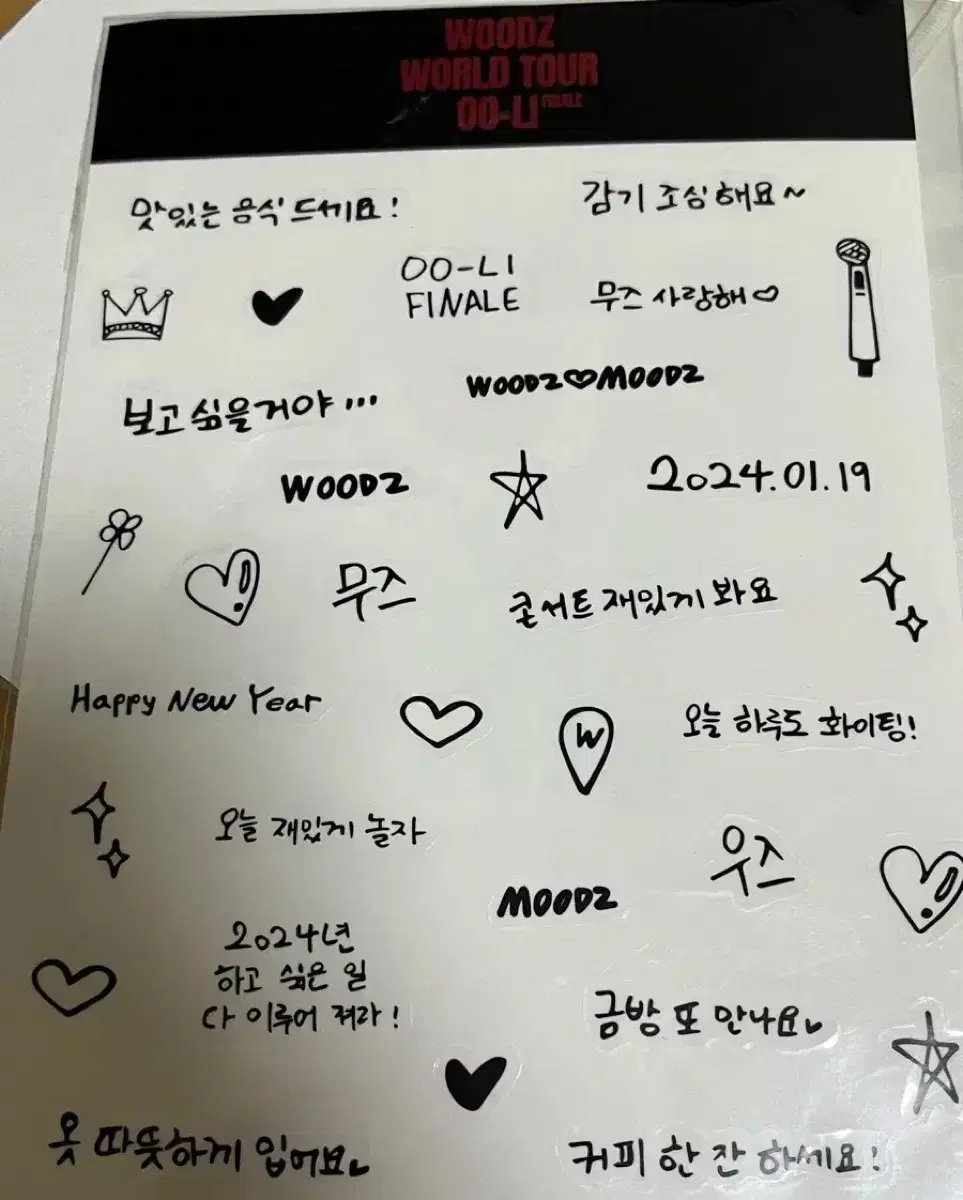 WOODZ
WORLD TOUR
OO-LI FINALE
맛있는 음식 드세요!
감기 조심해요~
OO-LI
FINALE
무즈 사랑해♡
보고 싶을거야...
WOODZ♡MOODZ
WOODZ
2024.01.19
무즈
콘서트 재밌게 봐요
Happy New Year
W
오늘 하루도 화이팅!
오늘 재밌게 놀자
우즈
MOODZ
2024년
하고 싶은 일
다 이루어 져라!
금방 또 만나요
옷 따뜻하게 입어요
커피 한 잔 하세요!